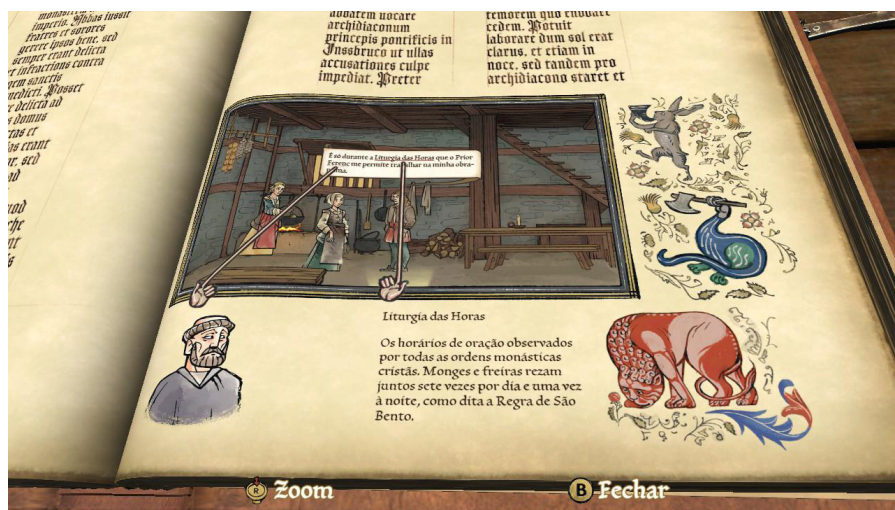 imperio. Abbas iussit
fratres et sorores
gerere ipsos bene. sed
semper erant delicta
et infractiones contra
delicta ad
domus
erant
sed
ad
abbatem uocare
archidiaconum
princepis pontificis in
Jnssbruco ut ullas
accusationes culpe
impediat. Preter
temorem quo
cedem. Potuit
laborare dum sol erat
clarus. et etiam in
noce. sed tandem pro
archidiacono staret et
É só durante a Liturgia das Horas que o Prior
Ferenc me permite trabalhar na minha obra-
Liturgia das Horas
Os horários de oração observados
por todas as ordens monásticas
cristãs. Monges e freiras rezam
juntos sete vezes por dia e uma vez
à noite, como dita a Regra de São
Bento.
R Zoom
B Fechar